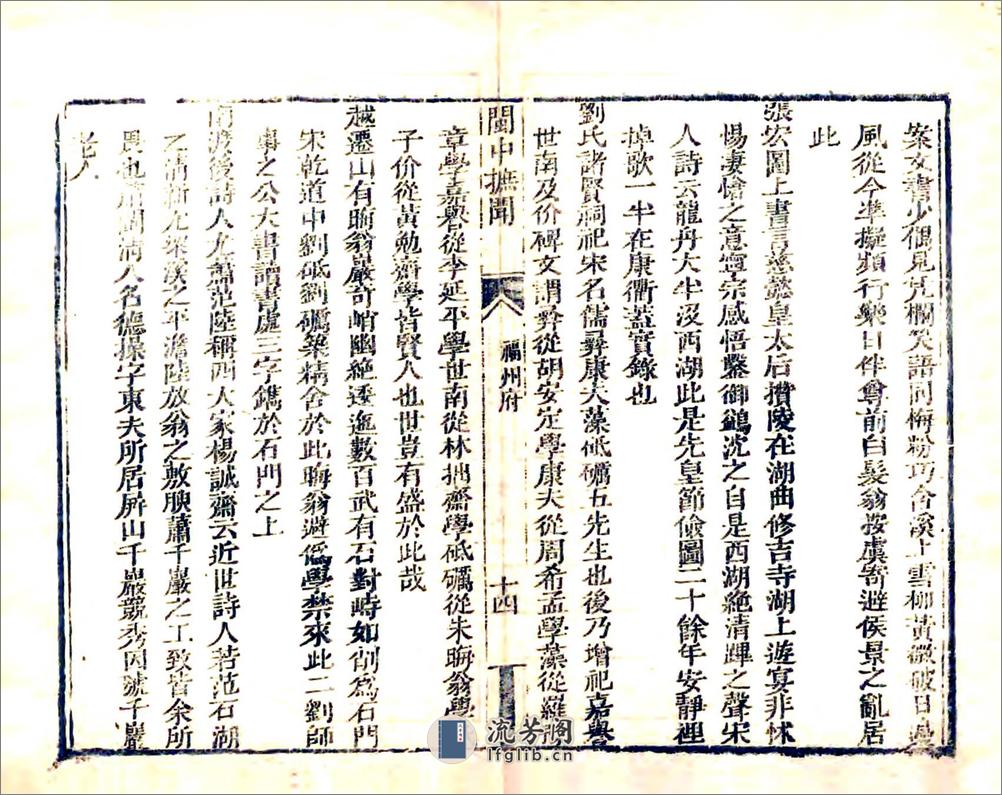 案文書少覩見凭欄笑語同梅粉巧合溪上雪柳黃微破日
風從今準擬頻行樂日伴尊前白髮翁按虞寄避侯景之亂居
此
張宏圖上書言慈懿皇太后攢陵在湖曲修吉寺湖上遊宴非怵
惕悽愴之意寧宗感悟鑿御鷁沈之自是西湖絶清蹕之聲宋
人詩云龍舟大半沒西湖此是先皇節儉圖二十餘年安靜裡
棹歌一半在康衢蓋實錄也
劉氏諸賢祠祀宋名儒彞康夫藻砥礪五先生也後乃增祀嘉譽
世南及价碑文謂彞從胡安定學康夫從周希孟學藻從羅豫
閩中摭聞
福州府
十四
章學嘉譽從李延平學世南從林拙齋學砥礪從朱晦翁學
子价從黃勉齋學皆賢人也世豈有盛於此哉
越遷山有晦翁巖奇峭幽絶逶迤數百武有石對峙如削爲石門
宋乾道中劉砥劉礪築精舍於此晦翁避僞學禁來此二劉師
事之公大書讀書處三字鐫於石門之上
南渡後詩人尤蕭范陸稱四大家楊誠齋云近世詩人若范石湖
之清新尤梁溪之平澹陸放翁之敷腴蕭千巖之工致皆余所
畏也蕭閩清人名德操字東夫所居屏山千巖競秀因號千巖
老人
流芳阁
lfglib.cn